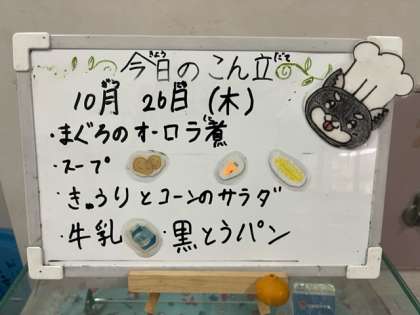 今日のこん立
きょう だて
10月 26日 (木)
・まぐろのオーロラ煮
・スープ
・きゅうりとコーンのサラダ
・牛乳 ・黒とうパン